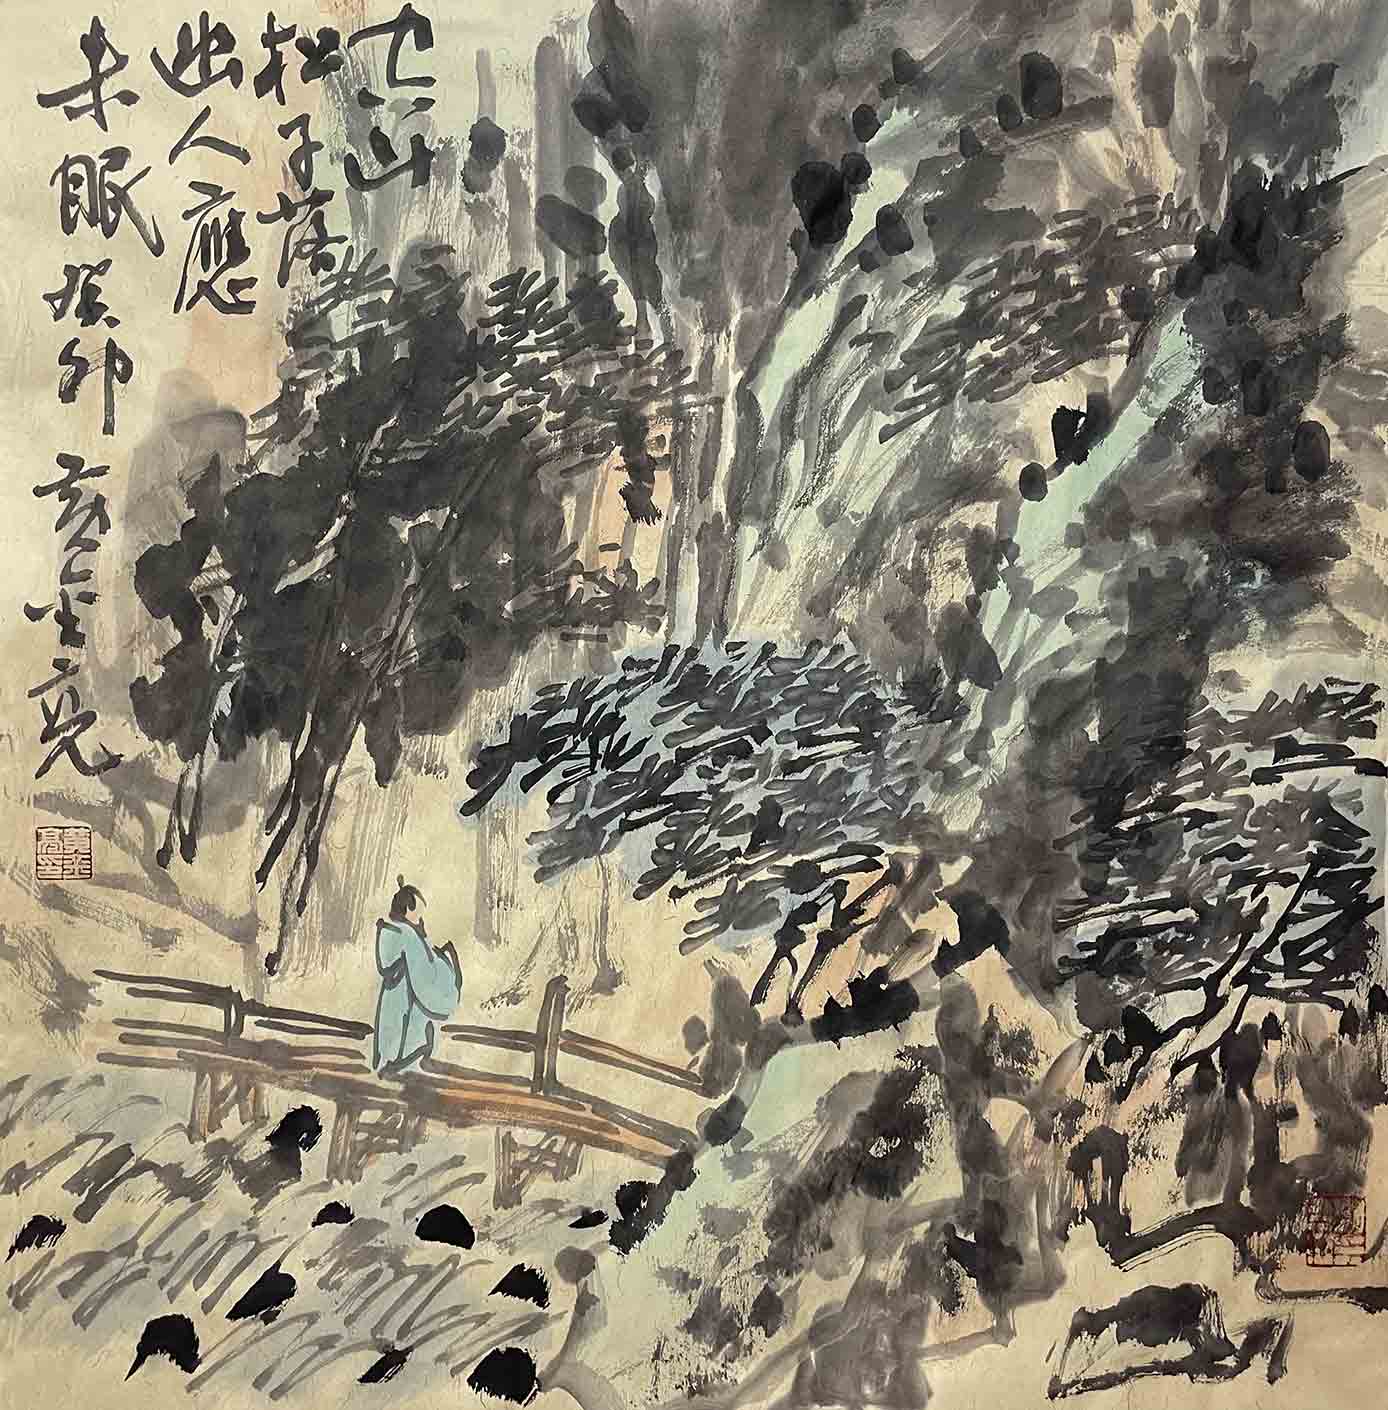 空山
松子落
幽人應
未眠 癸卯